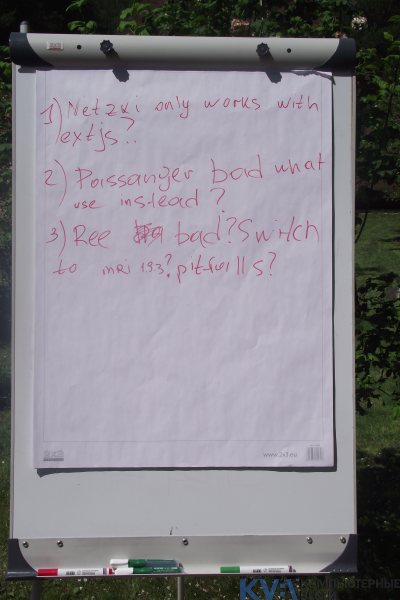 1) Netzki only works with
extjs?..
2) Poissanger bad what
use instead?
3) Ree bad? Switch
to mri 193? pitfalls?
2x3
www.2x3.eu
KVA КОМПЬЮТЕРНЫЕ